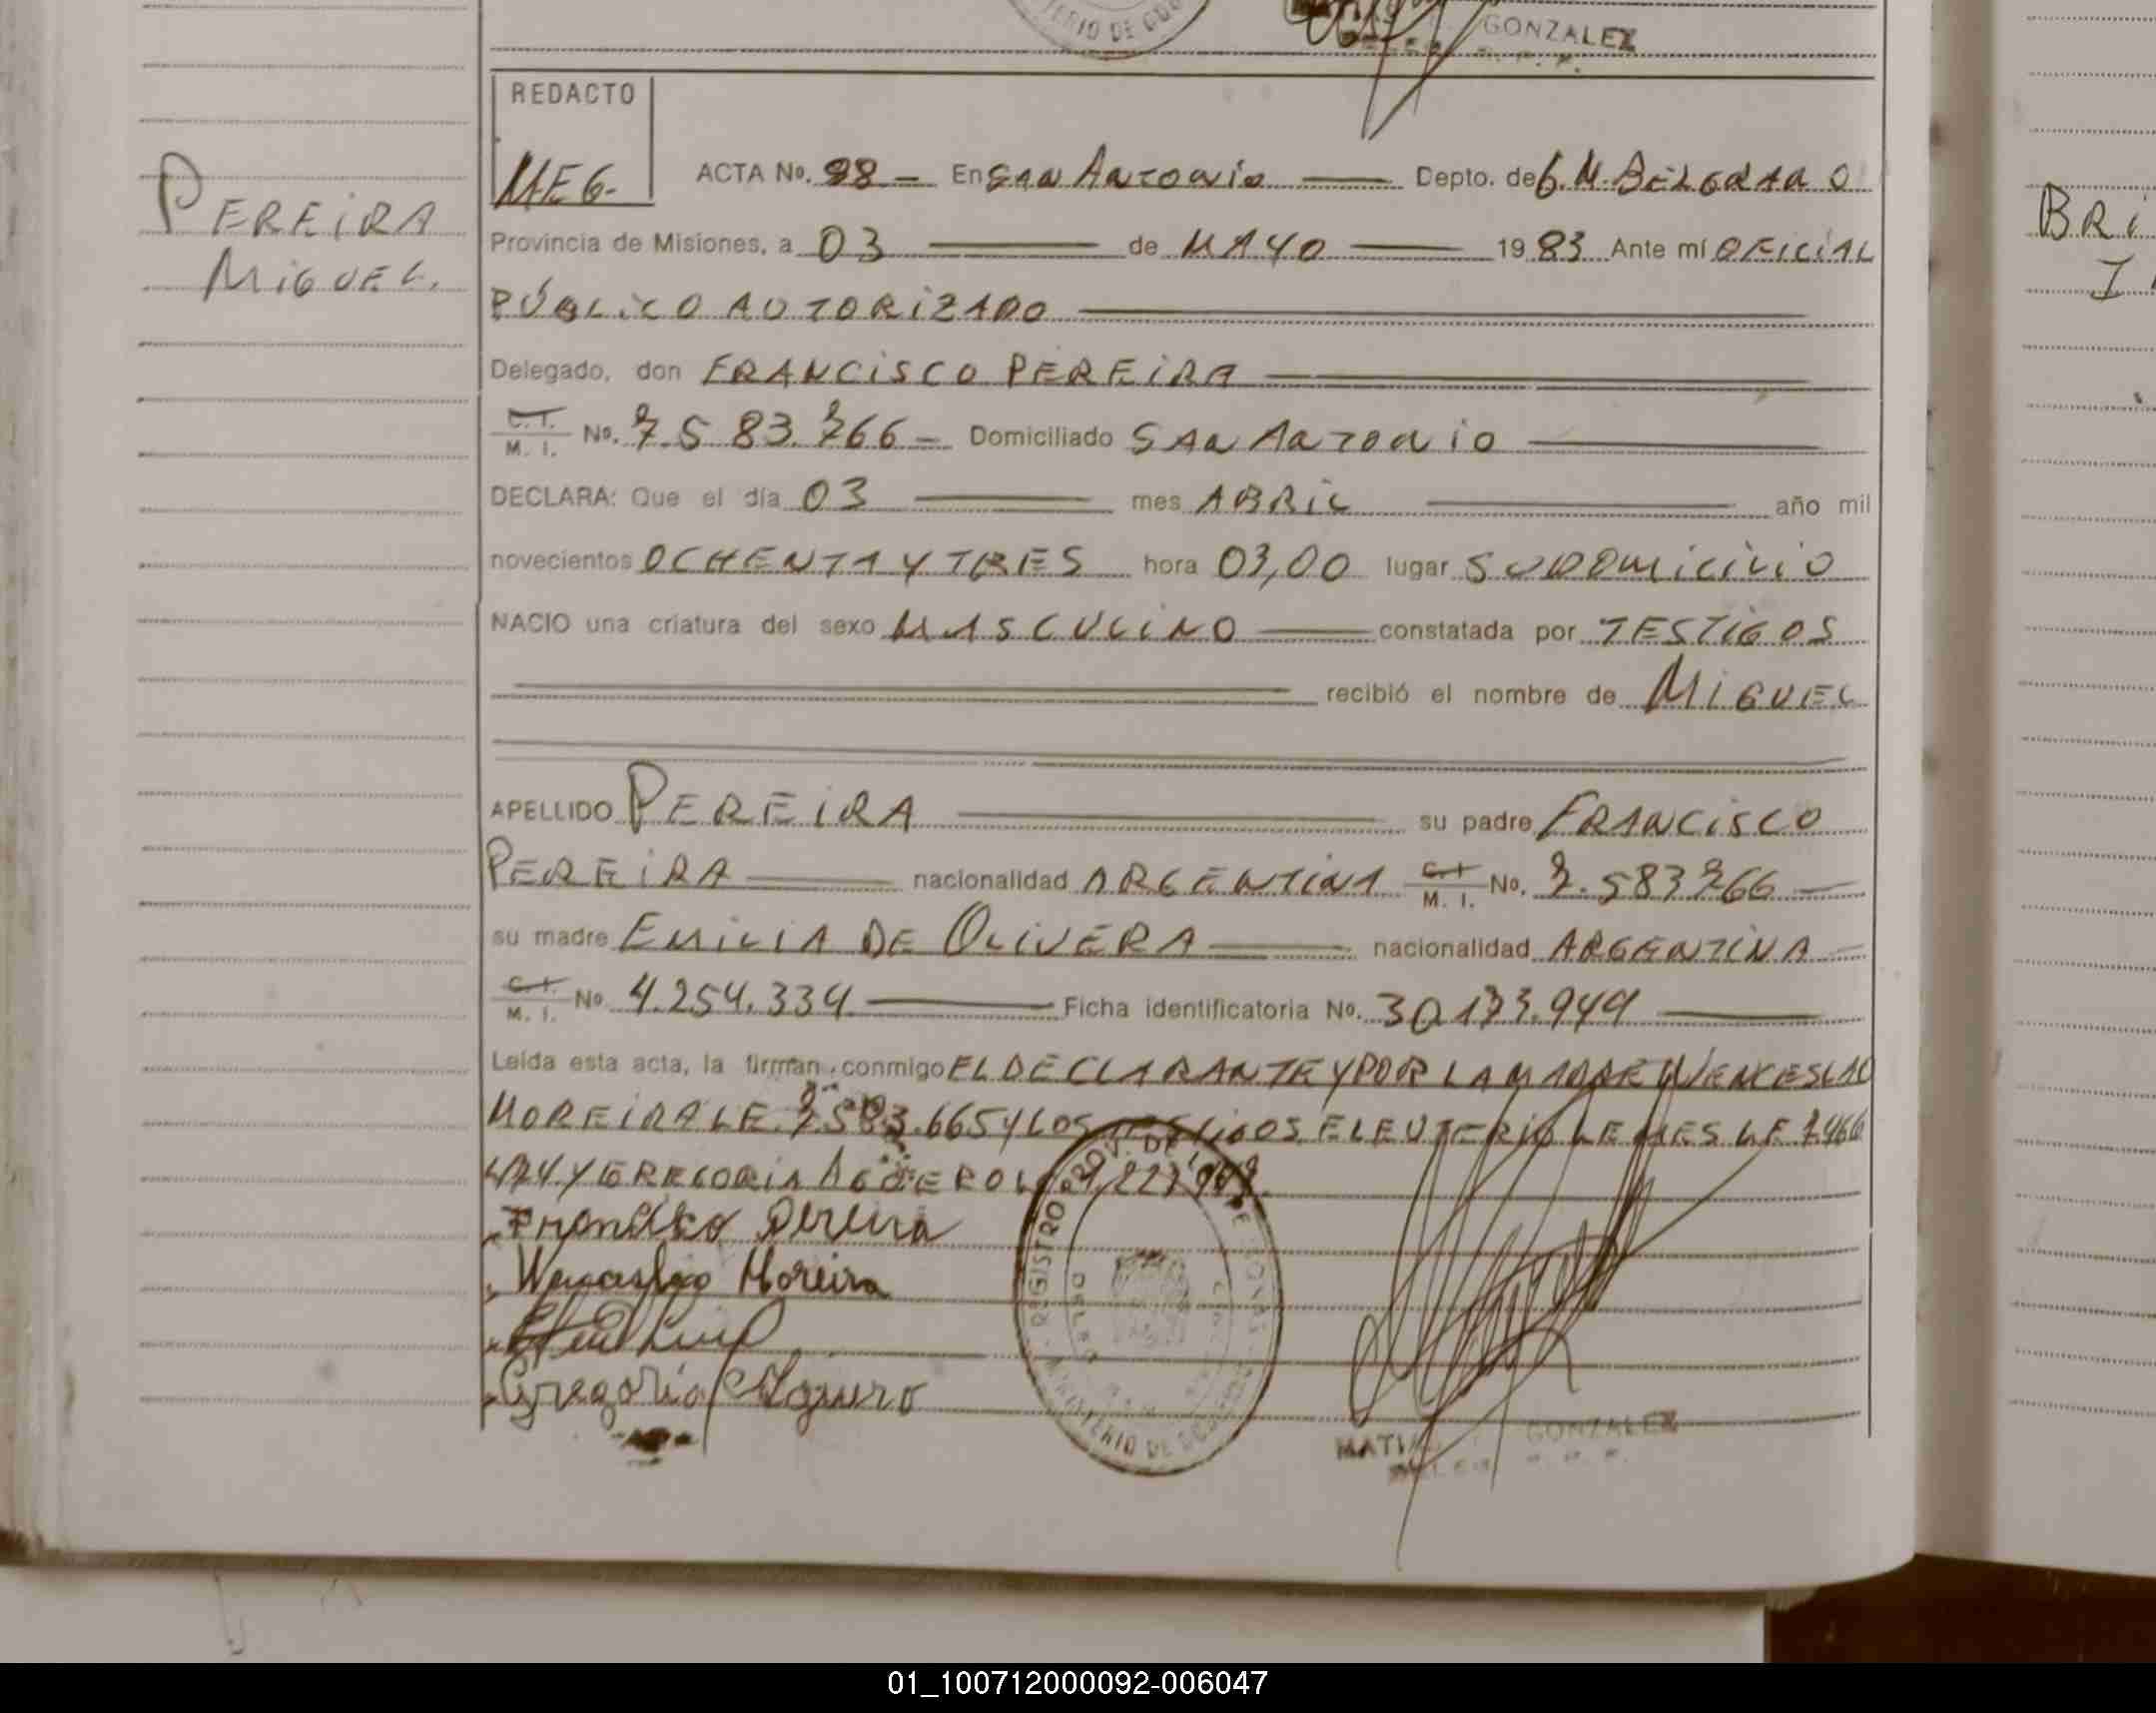 TERIO DE GOB
GONZALEZ
REDACTO
MEG.
ACTA No. 98 — En SAN ANTONIO — Depto. de G. M. BELGRANO
PEREIRA
MIGUEL.
Provincia de Misiones, a 03 — de MAYO — 1983 Ante mí OFICIAL
PÚBLICO AUTORIZADO
Delegado, don FRANCISCO PEREIRA
C. I. M. I. No. 7.583.766 — Domiciliado SAN ANTONIO
DECLARA: Que el día 03 — mes ABRIL — año mil
novecientos OCHENTA Y TRES hora 03,00 lugar SU DOMICILIO
NACIO una criatura del sexo MASCULINO — constatada por TESTIGOS
recibió el nombre de MIGUEL
APELLIDO PEREIRA — su padre FRANCISCO
PEREIRA — nacionalidad ARGENTINA C. I. M. I. No. 7.583.766 —
su madre EMILIA DE OLIVERA — nacionalidad ARGENTINA —
C. I. M. I. No 4.254.334 — Ficha identificatoria No. 30.173.949 —
Leída esta acta, la firman conmigo EL DECLARANTE Y POR LA MADRE WENCESLAO
MOREIRA LE 7.583.665 Y LOS TESTIGOS ELEUTERIO LEMES LE 7.466
Y GREGORIA AGÜERO
Francisco Pereira
Wenceslao Moreira
Gregoria Aguero
REGISTRO PROV. DE
MINISTERIO DE GOBIERNO
GONZALEZ
BRI
01_100712000092-006047